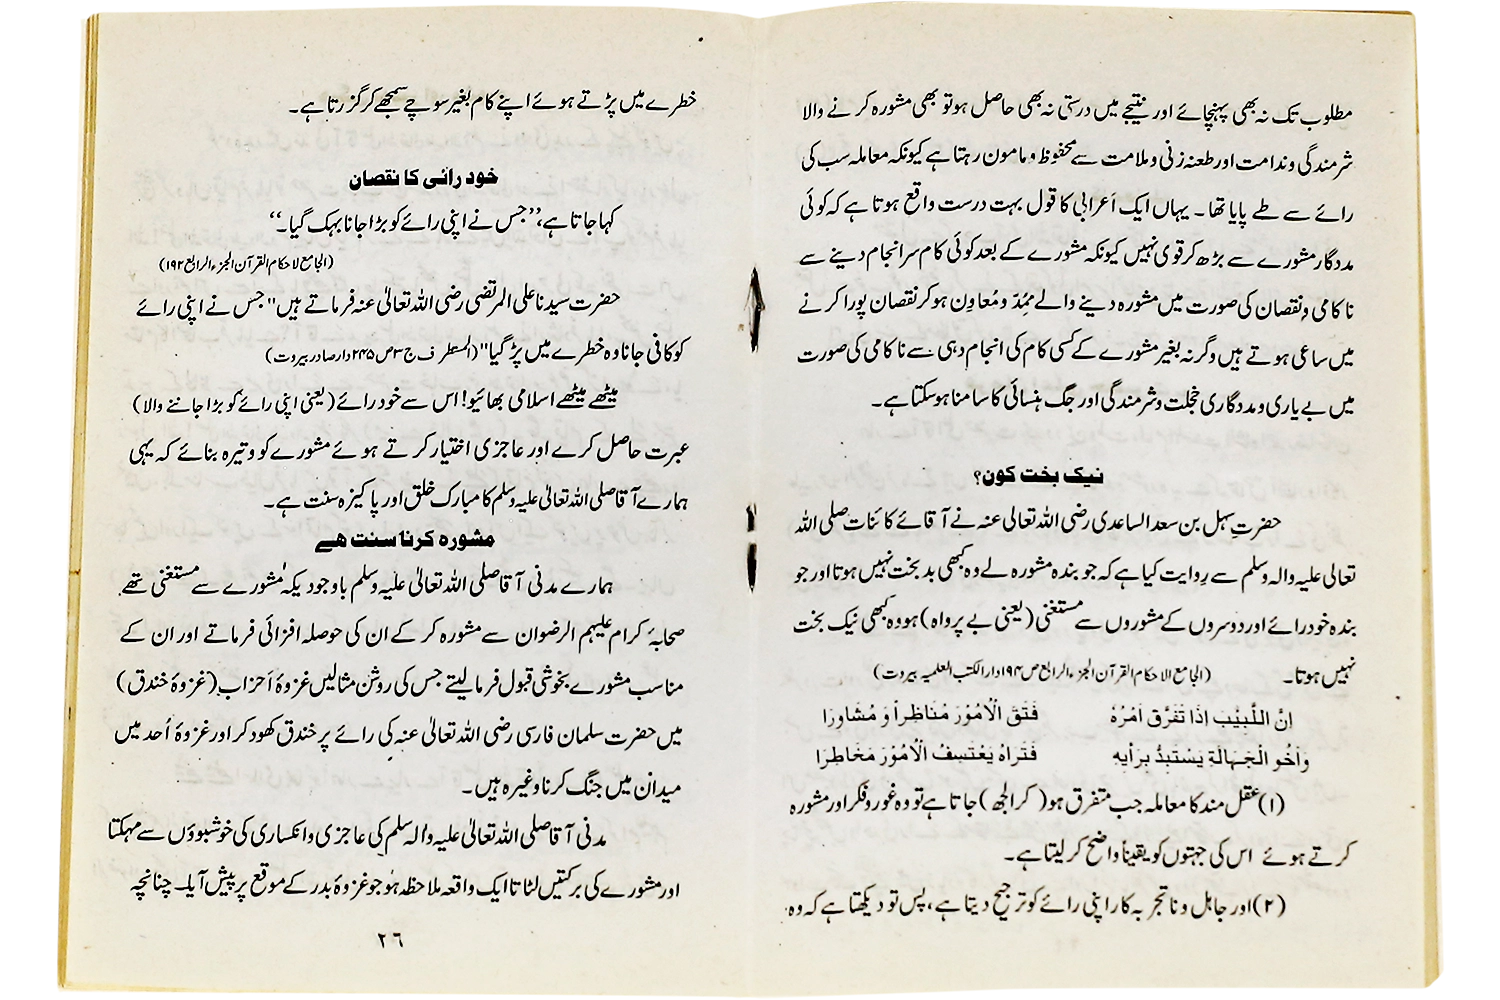 مطلوب تک نہ بھی پہنچائے اور نتیجے میں درستی نہ بھی حاصل ہو تو بھی مشورہ کرنے والا
شرمندگی و ندامت اور طعنہ زنی و ملامت سے محفوظ و مامون رہتا ہے کیونکہ معاملہ سب کی
رائے سے طے پایا تھا۔ یہاں ایک اَعرابی کا قول بہت درست واقع ہوتا ہے کہ کوئی
مددگار مشورے سے بڑھ کر قوی نہیں کیونکہ مشورے کے بعد کوئی کام سر انجام دینے سے
ناکامی و نقصان کی صورت میں مشورہ دینے والے مُمِدّ و مُعاوِن ہو کر نقصان پورا کرنے
میں ساعی ہوتے ہیں وگرنہ بغیر مشورے کے کسی کام کی انجام دہی سے ناکامی کی صورت
میں بے یاری و مددگاری خجلت و شرمندگی اور جگ ہنسائی کا سامنا ہو سکتا ہے۔
نیک بخت کون؟
حضرتِ سہل بن سعد الساعدی رضی اللہ تعالی عنہ نے آقائے کائنات صلی اللہ
تعالی علیہ والہ وسلم سے رِوایت کیا ہے کہ جو بندہ مشورہ لے وہ کبھی بدبخت نہیں ہوتا اور جو
بندہ خود رائے اور دوسروں کے مشوروں سے مستغنی (یعنی بے پرواہ) ہو وہ کبھی نیک بخت
نہیں ہوتا۔ (الجامع الاحکام القرآن الجزء الرابع ص ۱۹۴ دار الکتب العلمیہ بیروت)
اِنَّ اللَّبِیْبَ اِذَا تَفَرَّقَ اَمْرُہٗ فَتَقَ الْاُمُوْرَ مُنَاظِراً وَ مُشَاوِرَا
وَاَخُو الْجَہَالَۃِ یَسْتَبِدُّ بِرَأیِہٖ فَتَرَاہُ یَعْتَسِفُ الْاُمُوْرَ مَخَاطِرَا
(۱) عقل مند کا معاملہ جب متفرق ہو (کر الجھ) جاتا ہے تو وہ غور و فکر اور مشورہ
کرتے ہوئے اس کی جہتوں کو یقیناً واضح کر لیتا ہے۔
(۲) اور جاہل و ناتجربہ کار اپنی رائے کو ترجیح دیتا ہے، پس تو دیکھتا ہے کہ وہ
خطرے میں پڑتے ہوئے اپنے کام بغیر سوچے سمجھے کر گزرتا ہے۔
خود رائی کا نقصان
کہا جاتا ہے، ’’جس نے اپنی رائے کو بڑا جانا بہک گیا۔‘‘
(الجامع لاحکام القرآن الجزء الرابع ۱۹۲)
حضرت سیدنا علی المرتضی رضی اللہ تعالیٰ عنہ فرماتے ہیں "جس نے اپنی رائے
کو کافی جانا وہ خطرے میں پڑ گیا" (المستطرف ج ۳ ص ۲۴۵ دار صادر بیروت)
میٹھے میٹھے اسلامی بھائیو! اس سے خود رائے (یعنی اپنی رائے کو بڑا جاننے والا)
عبرت حاصل کرے اور عاجزی اختیار کرتے ہوئے مشورے کو وتیرہ بنائے کہ یہی
ہمارے آقا صلی اللہ تعالیٰ علیہ وسلم کا مبارک خلق اور پاکیزہ سنت ہے۔
مشورہ کرنا سنت ھے
ہمارے مدنی آقا صلی اللہ تعالیٰ علیہ وسلم باوجود یکہ مشورے سے مستغنی تھے
صحابۂ کرام علیہم الرضوان سے مشورہ کر کے ان کی حوصلہ افزائی فرماتے اور ان کے
مناسب مشورے بخوشی قبول فرما لیتے جس کی روشن مثالیں غزوۂ اَحزاب (غزوۂ خندق)
میں حضرت سلمان فارسی رضی اللہ تعالیٰ عنہ کی رائے پر خندق کھود کر اور غزوۂ اُحد میں
میدان میں جنگ کرنا وغیرہ ہیں۔
مدنی آقا صلی اللہ تعالیٰ علیہ والہ سلم کی عاجزی و انکساری کی خوشبوؤں سے مہکتا
اور مشورے کی برکتیں لٹاتا ایک واقعہ ملاحظہ ہو جو غزوۂ بدر کے موقع پر پیش آیا۔ چنانچہ
۲۶